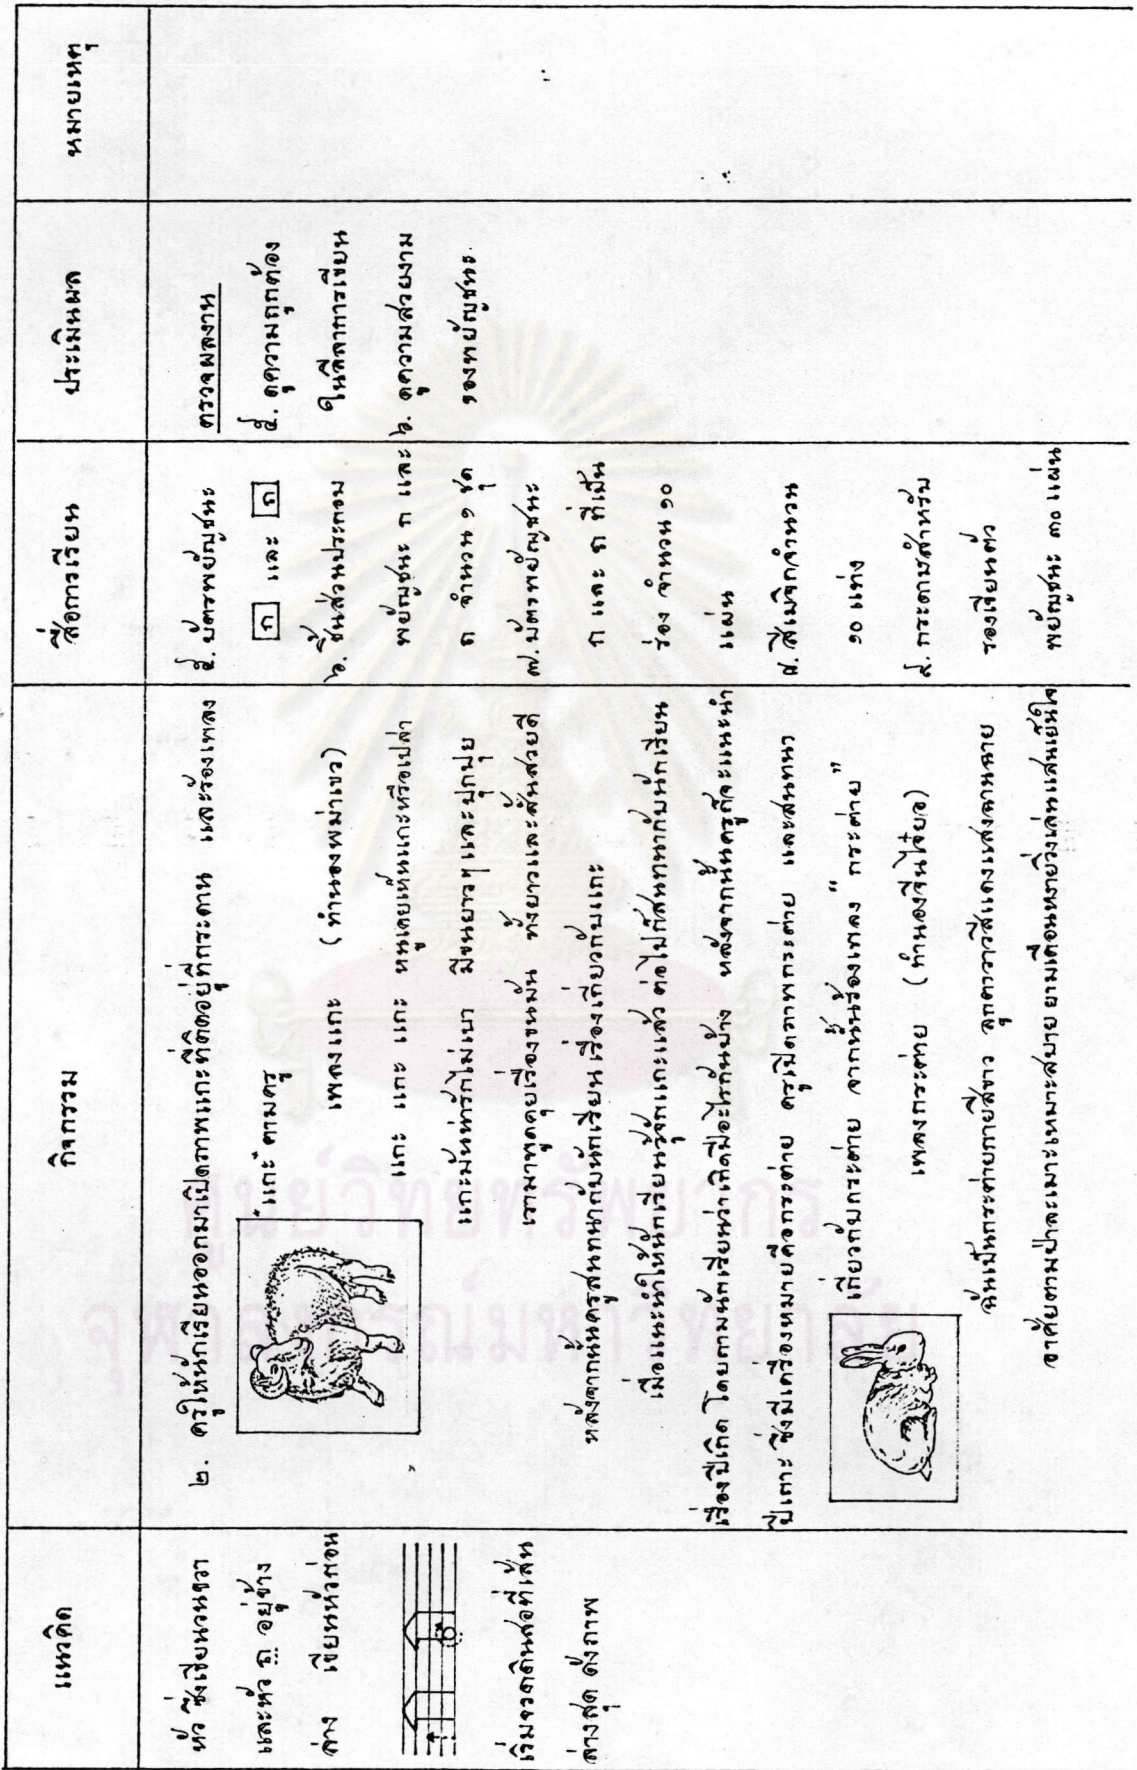 แนวคิด
หัว ซึ่งเขียนวนขวา
และหัว ถ อยู่ข้าง
ล่าง เขียนหัวก่อน
เริ่มจรดดินสอที่เส้น
ล่างสุด ดังภาพ
กิจกรรม
๒. ครูให้นักเรียนออกมาเปิดภาพแกะที่ติดอยู่ที่กระดาน และร้องเพลง
"แกะ" ตามครู
เพลงแกะ (ทำนองพม่าเขว)
แกะ แกะ แกะ หนูเคยเห็นแกะหรือเปล่า
แกะมันน่ารักไม่เบา มีขนยาวๆ และปุกปุย
เรามาพูดคุยเรื่องขนมัน ทั้งยาวและสั้นสวยดี
หลังจากนั้นครูสนทนากับนักเรียนเรื่องเกี่ยวกับแกะ
เมื่อแนะนำให้นักเรียนรู้จักแกะแล้ว ต่อไปก็สนทนากับนักเรียน
เรื่องปีเกิด โดยถามนักเรียนว่าเกิดปีอะไรกันบ้าง หลังจากนั้นครูก็จะแนะนำ
ปีเถาะ ซึ่งมีเครื่องหมายคือกระต่าย ครูเปิดภาพกระต่าย และสนทนา
เกี่ยวกับกระต่าย จากนั้นร้องเพลง "กระต่าย"
เพลงกระต่าย (ทำนองจีนไจ๋ยอ)
ฉันเป็นกระต่ายกายสีขาว ลูกตาวาวสีแดงแสงฉานฉาย
อาศัยตามป่าละเมาะเหมาะสบาย ยามเดือนหงายวิ่งเล่นเส้นเย็นใจ
สื่อการเรียน
๕. บัตรพยัญชนะ
ก และ ถ
๖. ชิ้นส่วนประกอบ
พยัญชนะ ก และ
ถ จำนวน ๑ ชุด
๗. บัตรพยัญชนะ
ก และ ถ ที่เป็น
ร่อง จำนวน ๑๐
แผ่น
๘. สีเมจิกจำนวน
๑๐ แท่ง
๙. กระดาษสำหรับ
รองเขียนตัว
พยัญชนะ ๓๐ แผ่น
ประเมินผล
ตรวจผลงาน
๕. ดูความถูกต้อง
ในลีลาการเขียน
๖. ดูความสวยงาม
ของพยัญชนะ.
หมายเหตุ
ศูนย์วิทยทรัพยากร
จุฬาลงกรณ์มหาวิทยาลัย